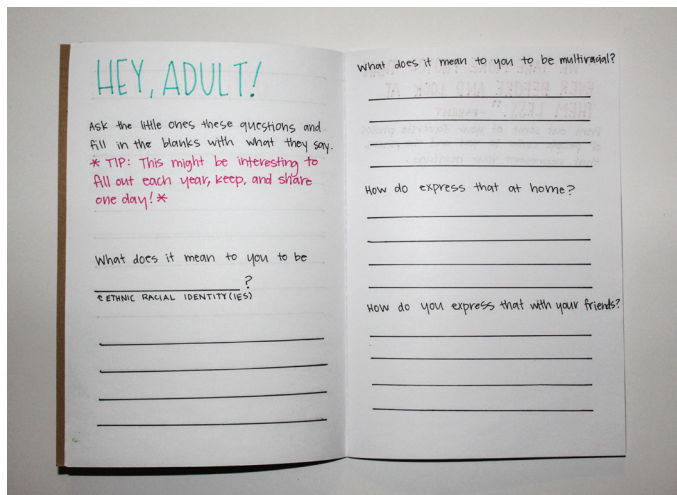 HEY, ADULT!
Ask the little ones these questions and
fill in the blanks with what they say.
* TIP: This might be interesting to
fill out each year, keep, and share
one day! *
What does it mean to you to be
?
ETHNIC RACIAL IDENTITY(IES)
What does it mean to you to be multiracial?
How do express that at home?
How do you express that with your friends?